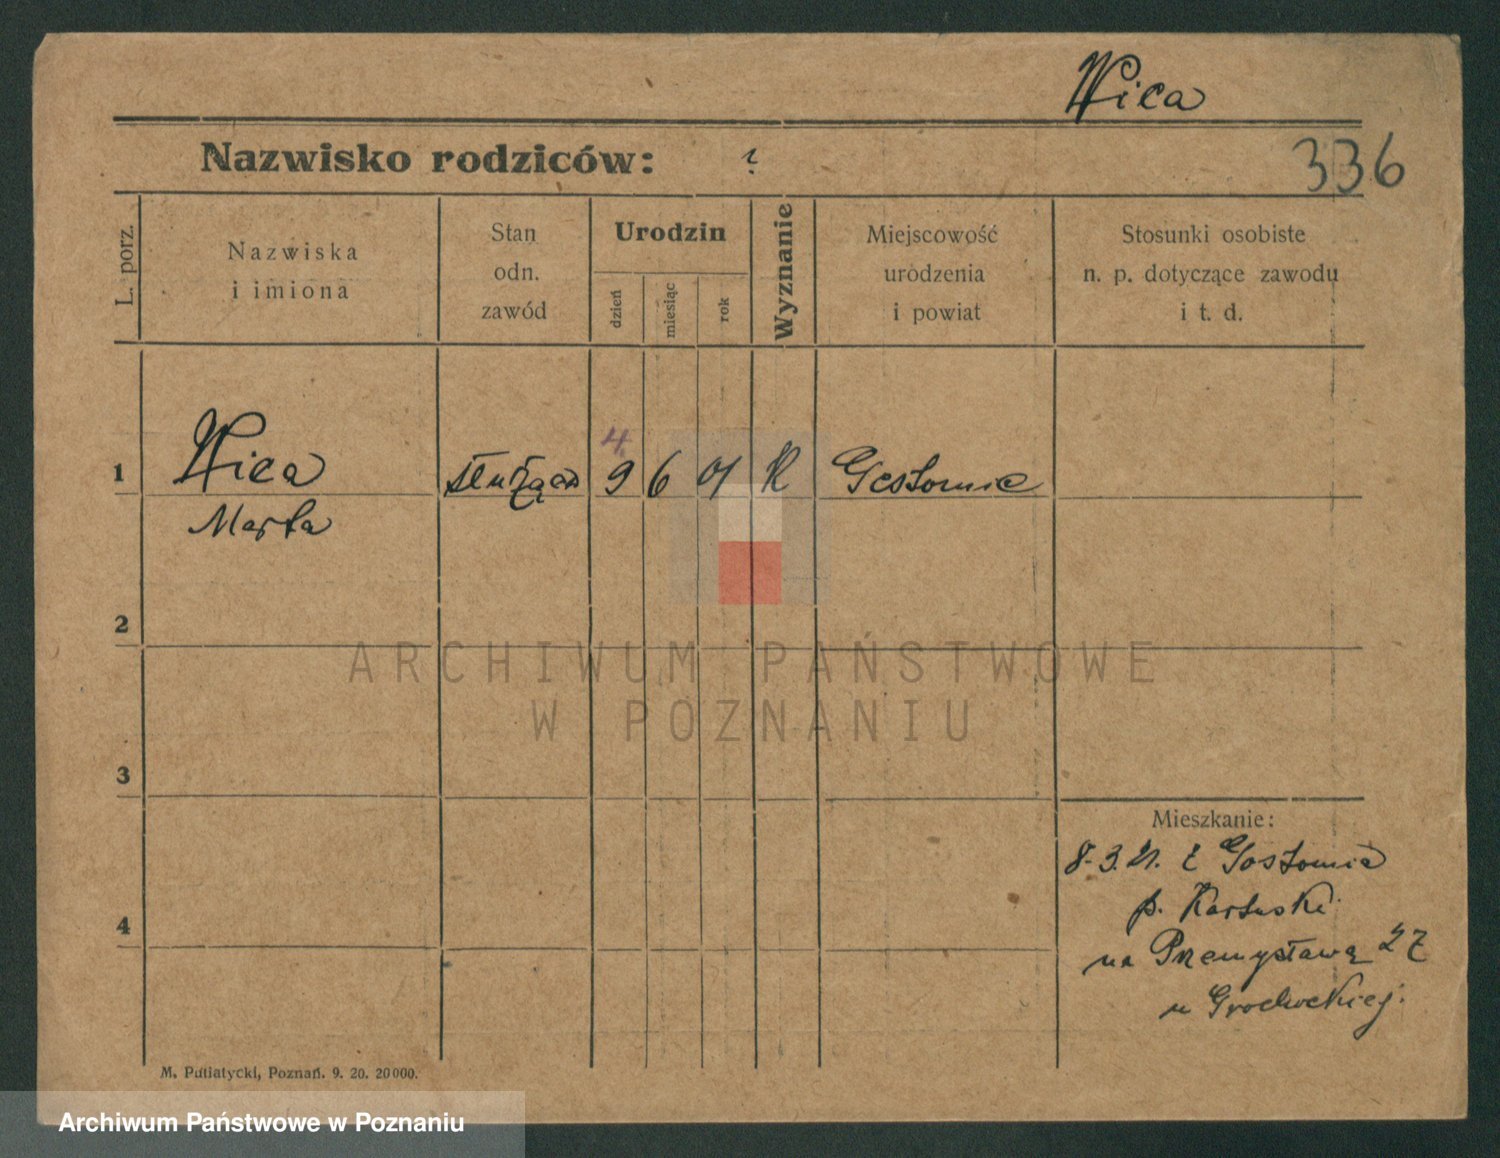 Wica
Nazwisko rodziców: ?
336
L. porz.
Nazwiska
i imiona
Stan
odn.
zawód
Urodzin
dzień
miesiąc
rok
Wyznanie
Miejscowość
urodzenia
i powiat
Stosunki osobiste
n. p. dotyczące zawodu
i t. d.
4.
1 Wica służąca 9 6 01 K Gostomie
Marta
2
3
4
Mieszkanie:
8.3.21. z Gostomia
p. Kartuski
na Przemysławą 27
u Grodzckiej.
M. Putiatycki, Poznań. 9. 20. 20000.
ARCHIWUM PAŃSTWOWE
W POZNANIU
Archiwum Państwowe w Poznaniu